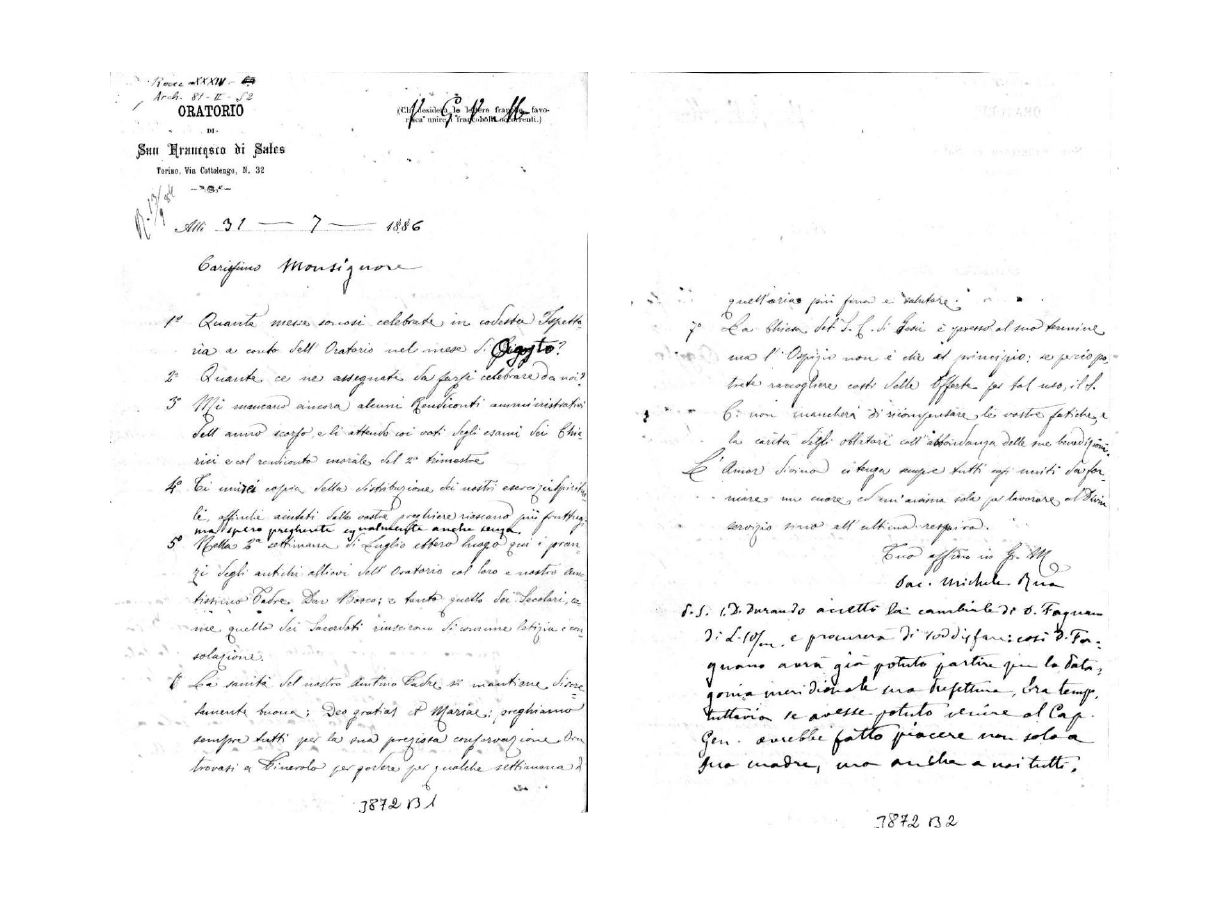 Arch. 81-II-52
ORATORIO
DI
San Francesco di Sales
Torino, Via Cottolengo, N. 32
(Chi desidera le lettere franche, favo-
risca unire i francobolli occorrenti.)
Alli 31 — 7 — 1886
Carissimo Monsignore
1° Quante messe sonosi celebrate in codesta Ispetto
ria a conto dell'Oratorio nel mese di Agosto?
2° Quante ce ne assegnate da farsi celebrare da noi?
3 Mi mancano ancora alcuni Rendiconti amministrativi
dell'anno scorso, e li attendo coi voti degli esami dei Chie
rici e col rendiconto morale del 2° trimestre
4° Ti unirei copia della distribuzione dei nostri esercizi spiritua
li, affinché aiutati dalle vostre preghiere riescano più fruttuosi
ma spero pregherete egualmente anche senza.
5° Nella 2ª settimana di Luglio ebbero luogo qui i pran-
zi degli antichi allievi dell'Oratorio col loro e nostro aman
tissimo Padre Don Bosco; e tanto quello dei Secolari, co
me quello dei Sacerdoti riuscirono di comune letizia e con
solazione.
6 La sanità del nostro amatmo Padre si mantiene discre
tamente buona; Deo gratias et Mariae; preghiamo
sempre tutti per la sua preziosa conservazione. Ora
trovasi a Pinerolo per godere per qualche settimana di
3872 B1
quell'aria più fina e salutare.
7° La Chiesa del S. C. di Gesù è presso al suo termine
ma l'Ospizio non è che al principio; se perciò po
trete raccogliere costì delle offerte per tal uso, il S.
C. non mancherà di ricompensare le vostre fatiche, e
la carità degli oblatori coll'abbondanza delle sue benedizioni.
L'Amor divino ci tenga sempre tutti così uniti da for
mare un cuore, ed un'anima sola per lavorare al Divin
servizio sino all'ultimo respiro.
Tuo affmo in G. M.
Sac. Michele Rua
P.S. D. Durando accettò la cambiale di D. Fagnano
di L. 10/m. e procurerà di soddisfare: così D. Fa-
gnano avrà già potuto partire per la Pata-
gonia meridionale sua Prefettura. Era tempo,
tuttavia se avesse potuto venire al Cap.
Gen. avrebbe fatto piacere non solo a
sua madre, ma anche a noi tutti.
3872 B2